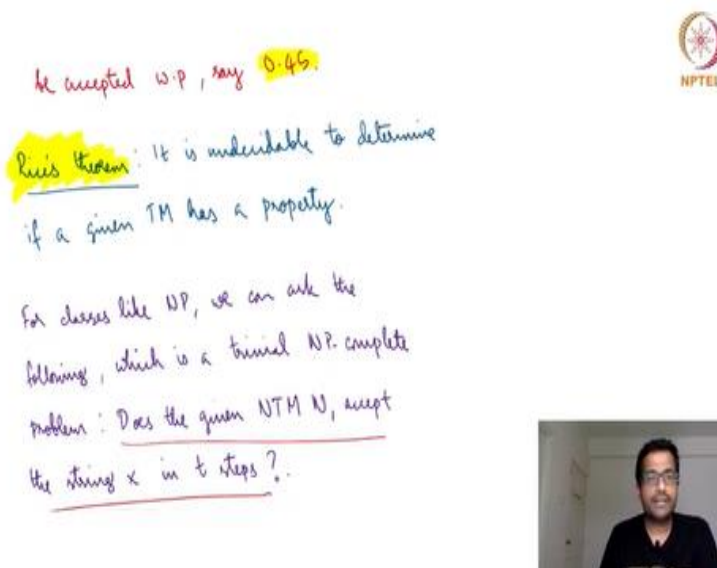 be accepted w.p, say 0.45.
NPTEL
Rice's theorem: It is undecidable to determine
if a given TM has a property.
For classes like NP, we can ask the
following, which is a trivial NP-complete
problem: Does the given NTM N, accept
the string x in t steps?.